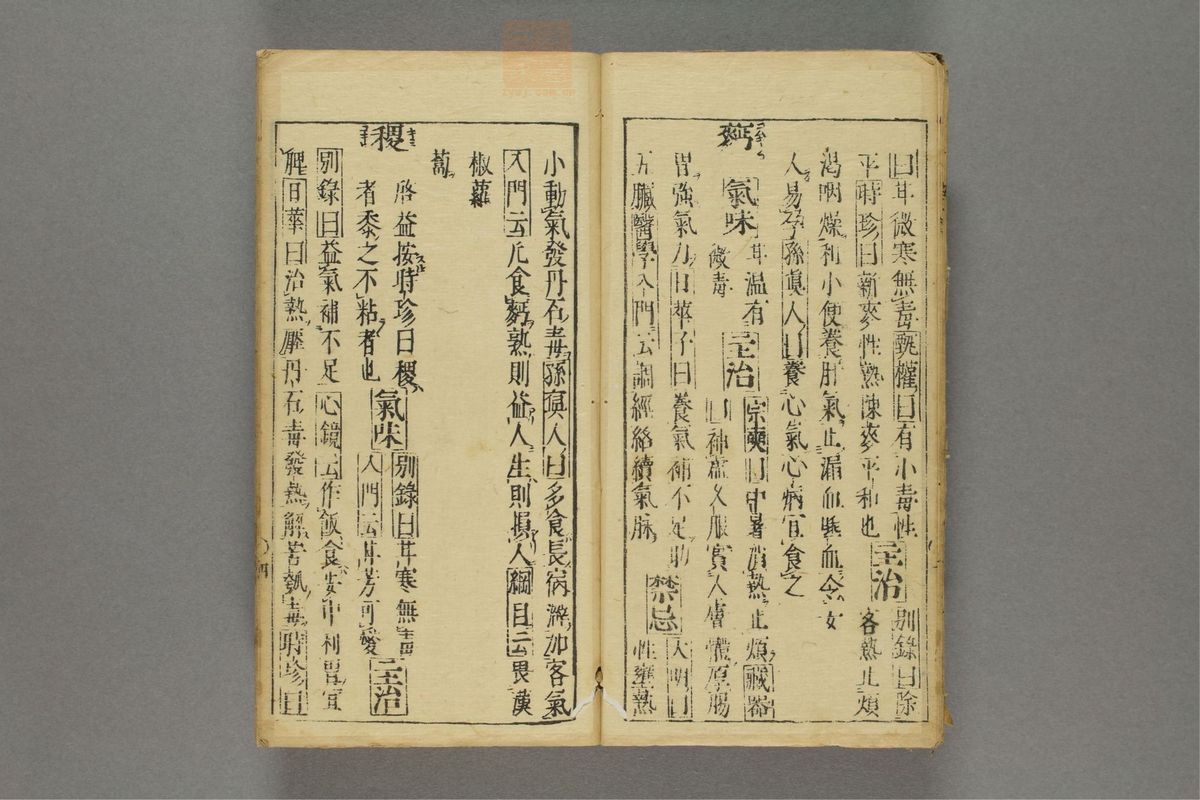 曰甘微寒無毒甄權曰有小毒性
平時珍曰新麥性熱陳麥平和也 主治 別錄曰除客熱止煩
渴咽燥利小便養肝氣止漏血唾血令女
人易孕孫真人曰養心氣心病宜食之
麪 氣味 甘温有微毒 主治 宗奭曰中暑消熱止煩藏器
曰補虛久服實人膚體厚腸
胃強氣力日華子曰養氣補不足助
五臟醫學入門云調經絡續氣脉 禁忌 大明曰性壅熱
小動氣發丹石毒孫真人曰多食長宿澼加客氣
入門云凡食麪熟則益人生則損人綱目云畏漢
椒蘿
蔔
稷 啓益按時珍曰稷
者黍之不粘者也 氣味 別錄曰甘寒無毒入門云甘芳可愛 主治
別錄曰益氣補不足心鏡云作飯食安中利胃宜
脾日華曰治熱壓丹石毒發熱解苦瓠毒時珍曰